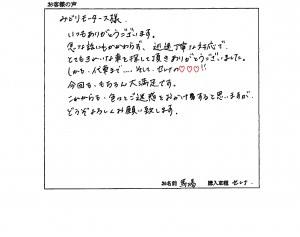 お客様の声
みどりモータース様
いつもありがとうございます。
急な話にもかかわらず、迅速丁寧な対応で、
とてもきれいな車を探して頂きありがとうございました。
しかも、代車まで…。そして、セレナの♡♡♡!!
今回も、もちろん大満足です。
これからも、色々とご迷惑をおかけすると思いますが、
どうぞよろしくお願い致します。
お名前 馬場 購入車種 セレナ